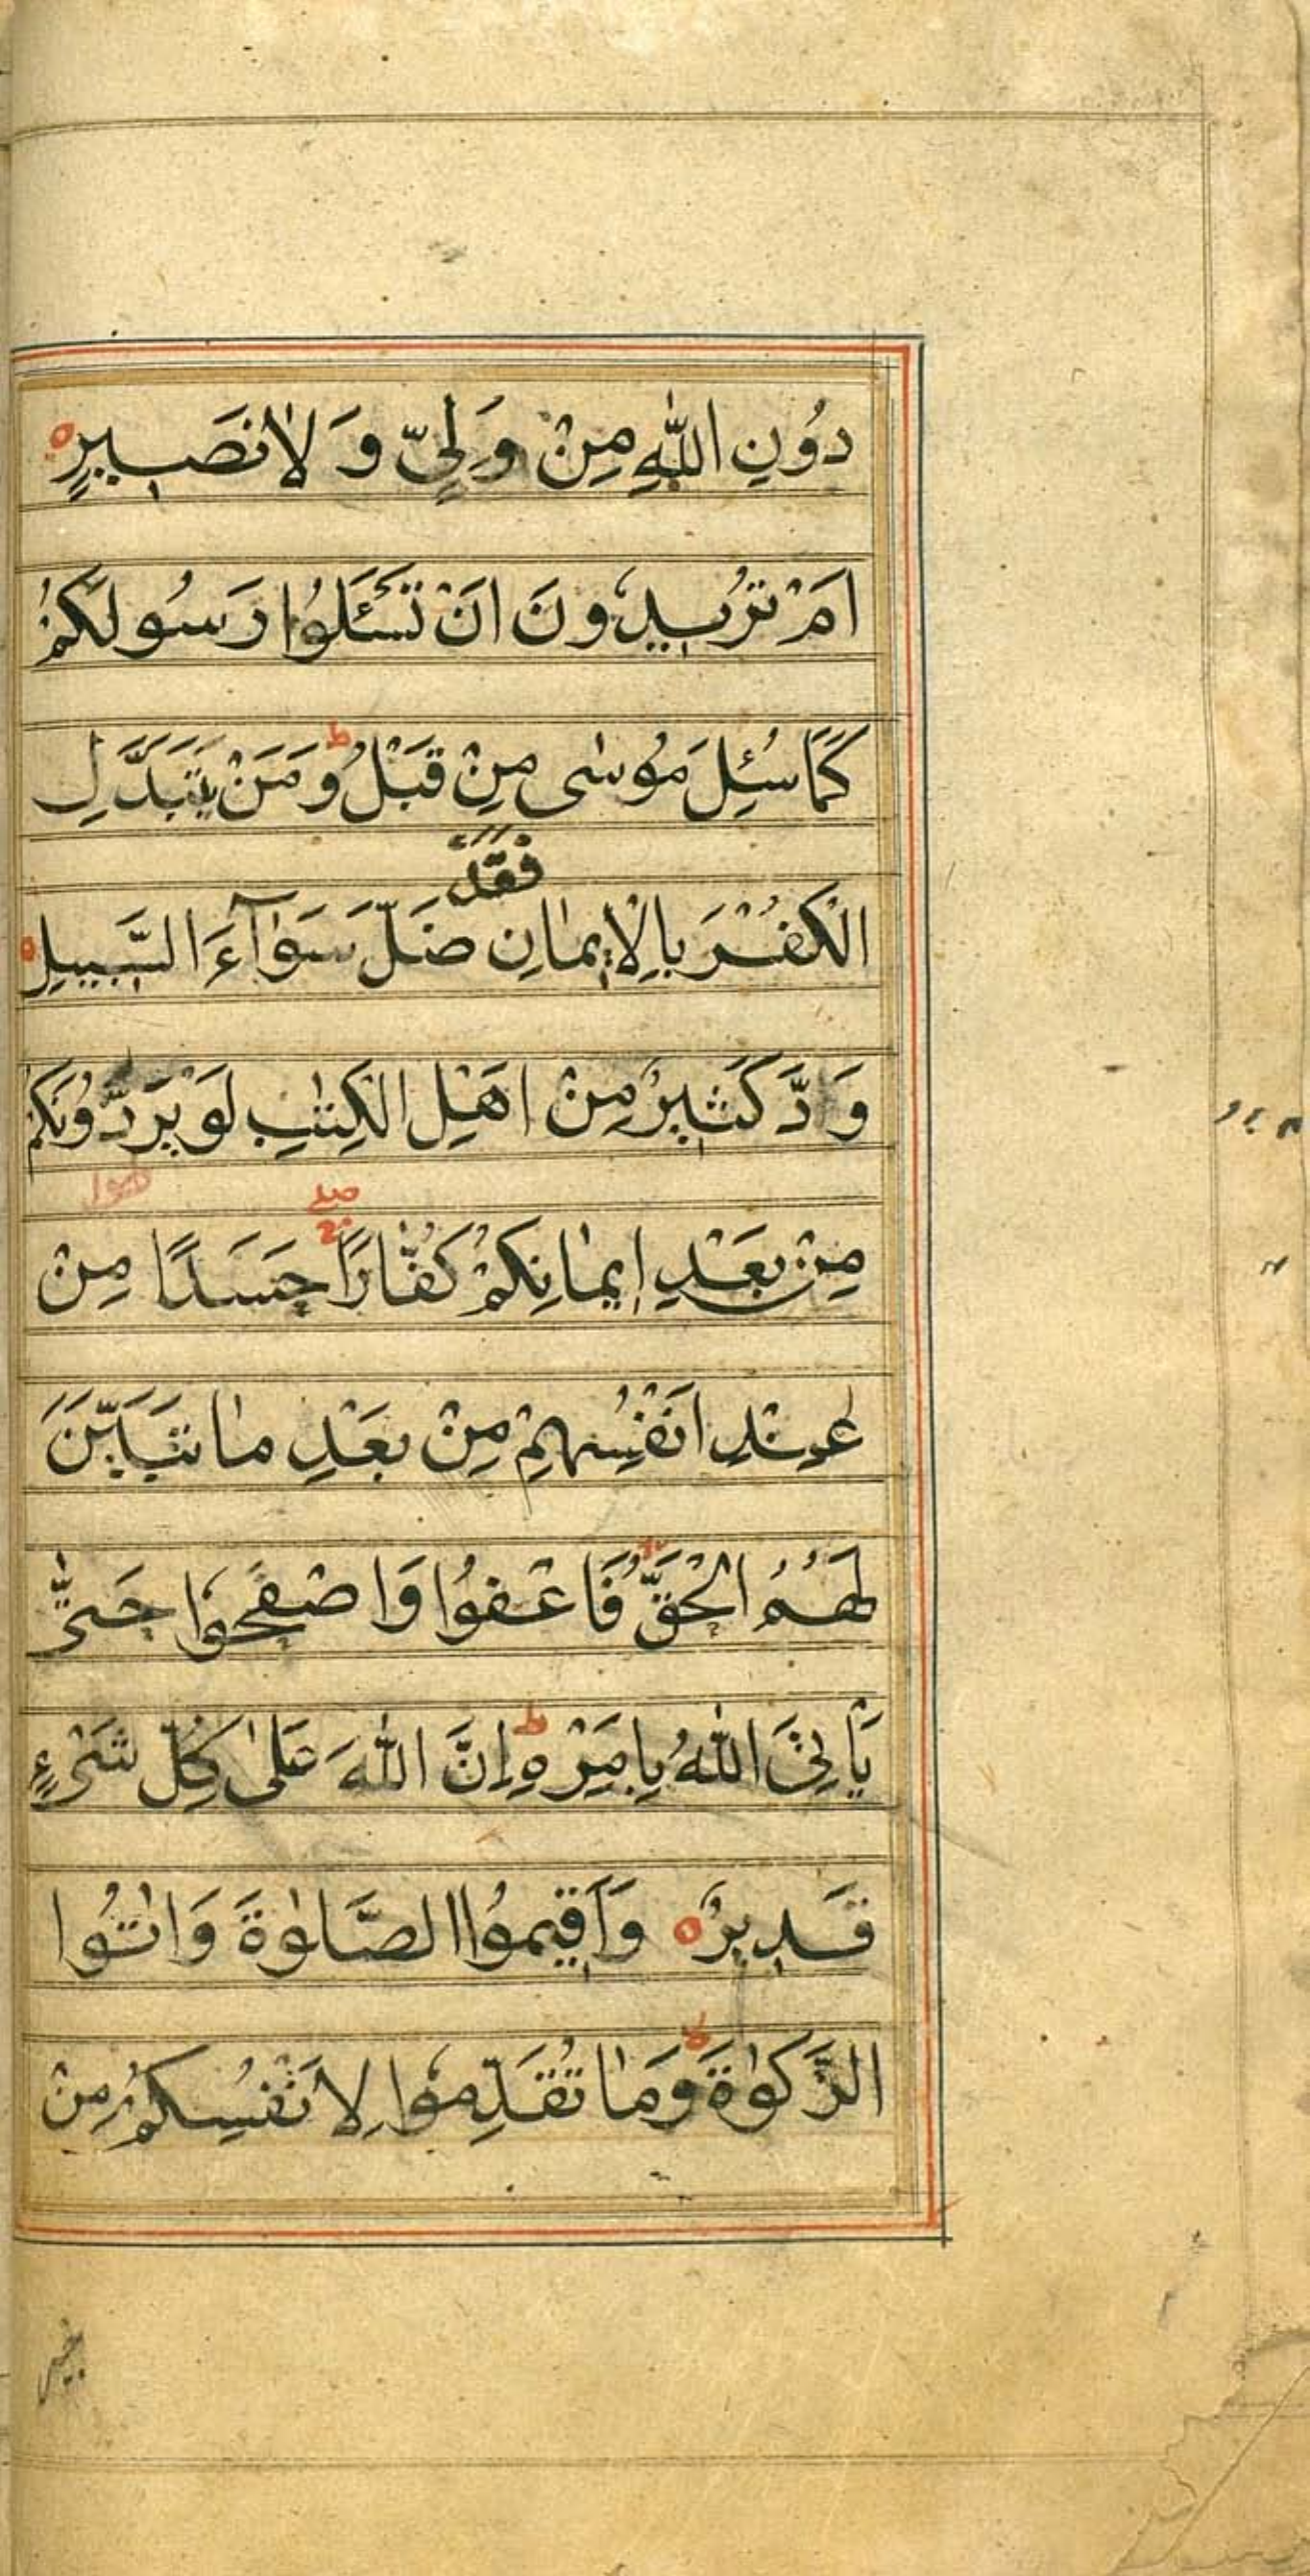 دُونِ اللّٰهِ مِنْ وَلِیٍّ وَ لَا نَصِیرٍ ه
اَمْ تُرِیدُونَ اَنْ تَسْئَلُوا رَسُولَكُمْ
كَمَا سُئِلَ مُوسٰی مِنْ قَبْلُ ط وَ مَنْ یَتَبَدَّلِ
فَقَدْ
الْكُفْرَ بِالْاِیمٰانِ ضَلَّ سَوٰآءَ السَّبِیلِ ه
وَدَّ كَثِیرٌ مِنْ اَهْلِ الْكِتٰبِ لَوْ یَرُدُّونَكُمْ
صلے
مِنْ بَعْدِ اِیمٰانِكُمْ كُفّٰارًا حَسَدًا مِنْ
عِنْدِ اَنْفُسِهِمْ مِنْ بَعْدِ مٰا تَبَیَّنَ
لَهُمُ الْحَقُّ فَاعْفُوا وَاصْفَحُوا حَتّٰی
یَأْتِیَ اللّٰهُ بِاَمْرِهِ ط اِنَّ اللّٰهَ عَلٰی كُلِّ شَیْءٍ
قَدِیرٌ ه وَاَقِیمُوا الصَّلٰوةَ وَاٰتُوا
الزَّكٰوةَ ط وَمٰا تُقَدِّمُوا لِاَنْفُسِكُمْ مِنْ